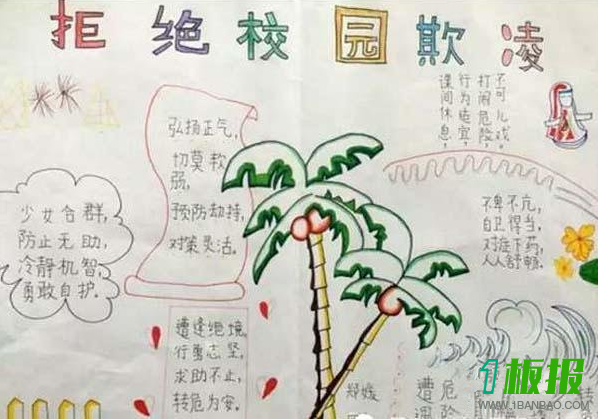 拒绝校园欺凌
弘扬正气,
切莫软
弱,
预防劫持,
对策灵活。
课间休息,
行为适宜,
打闹危险,
不可儿戏。
少女合群,
防止无助,
冷静机智,
勇敢自护。
不卑不亢,
自卫得当,
对症下药,
人人舒畅。
遭逢绝境,
行勇志坚,
求助不止,
转危为安。
遭
危
险
1板报
WWW.1BANBAO.COM